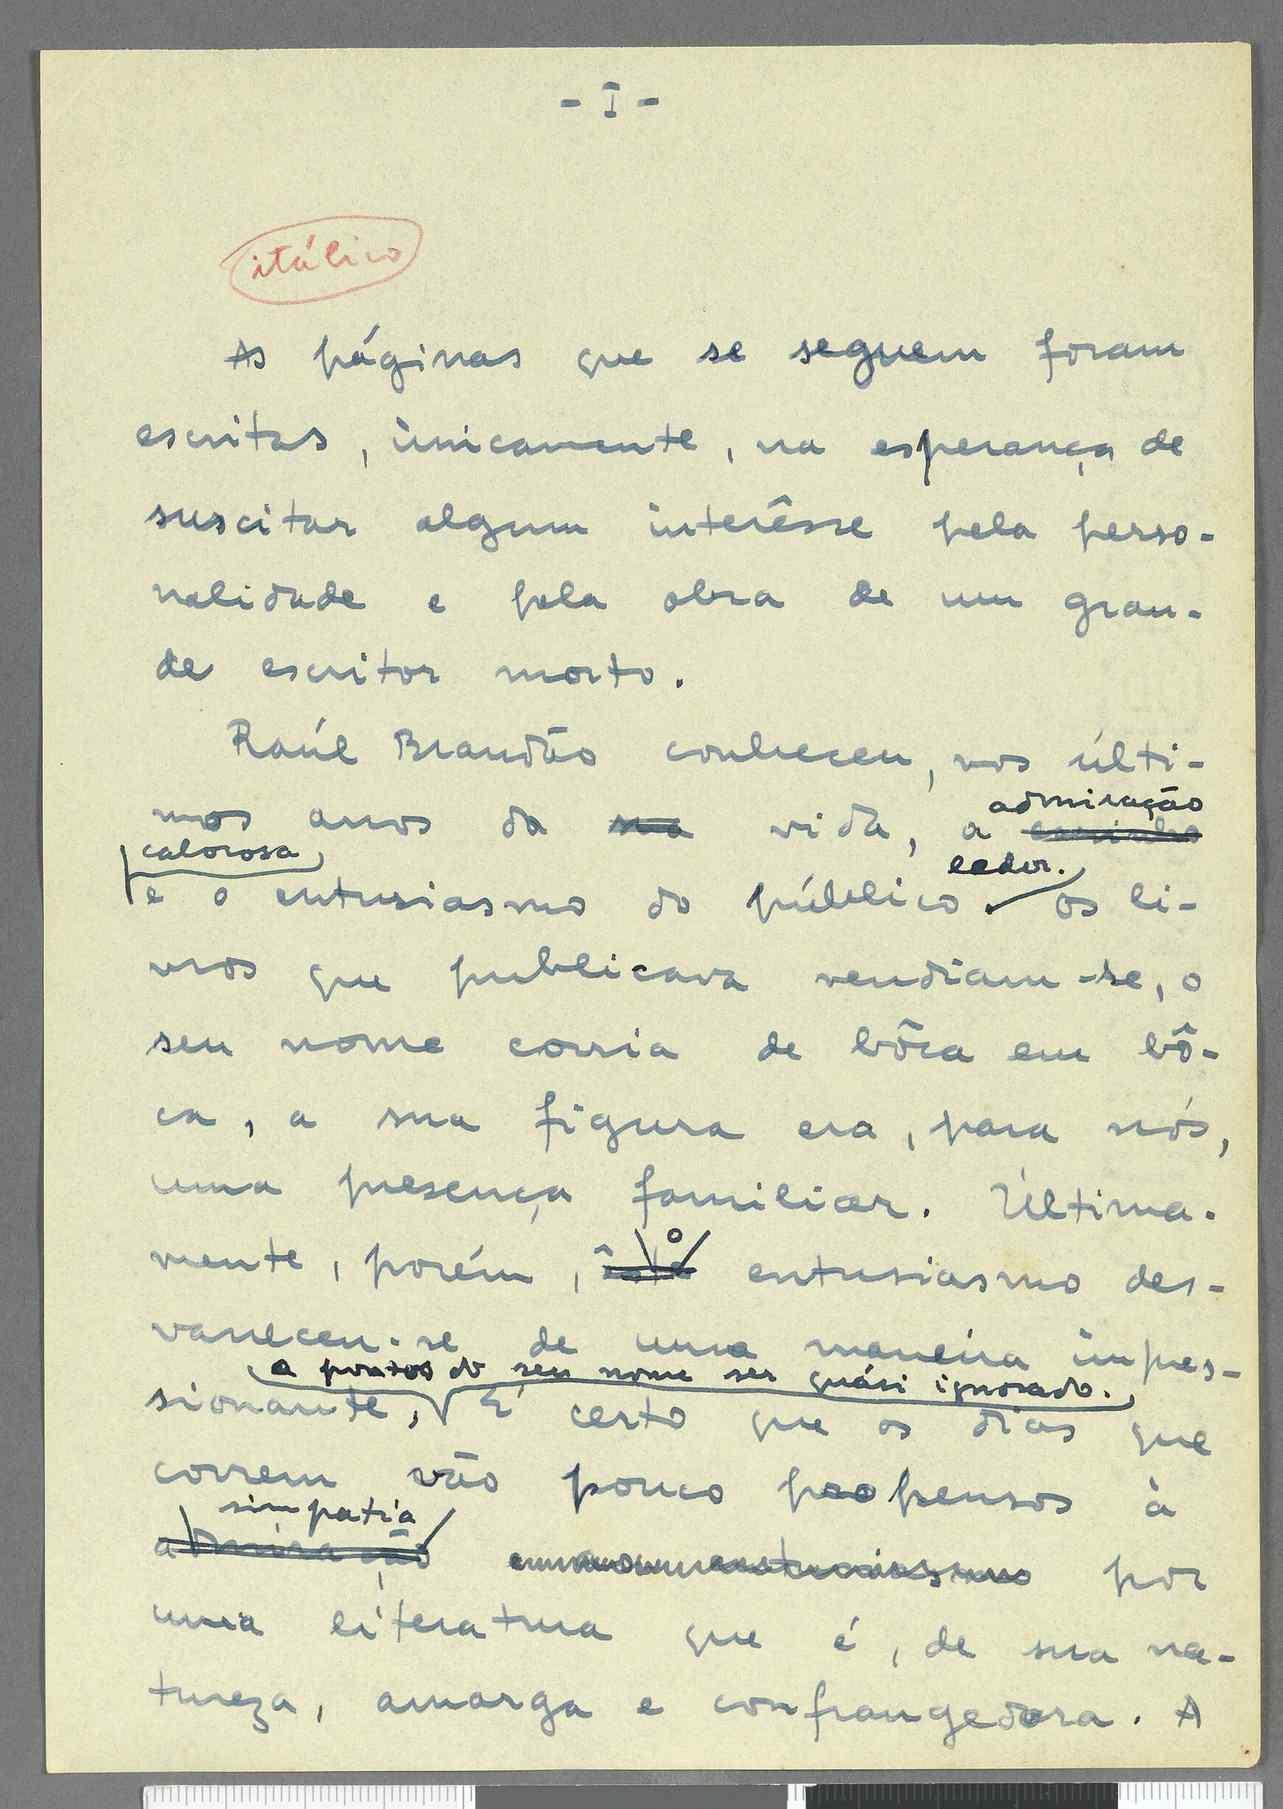 - I -
itálico
As páginas que se seguem foram
escritas, ùnicamente, na esperança de
suscitar algum interêsse pela perso-
nalidade e pela obra de um gran-
de escritor morto.
Raúl Brandão conheceu, nos últi-
admiração
mos anos da sua vida, a carinho
calorosa
ledor.
e o entusiasmo do público. Os li-
vros que publicava vendiam-se, o
seu nome corria de bôca em bô-
ca, a sua figura era, para nós,
uma presença familiar. Ùltima-
o
mente, porém, êste entusiasmo des-
vaneceu-se de uma maneira impres-
a pontos do seu nome ser quási ignorado.
sionante, É certo que os dias que
correm vão pouco propensos à
simpatia
admiração entusiasmo por
uma literatura que é, de sua na-
tureza, amarga e confrangedora. A